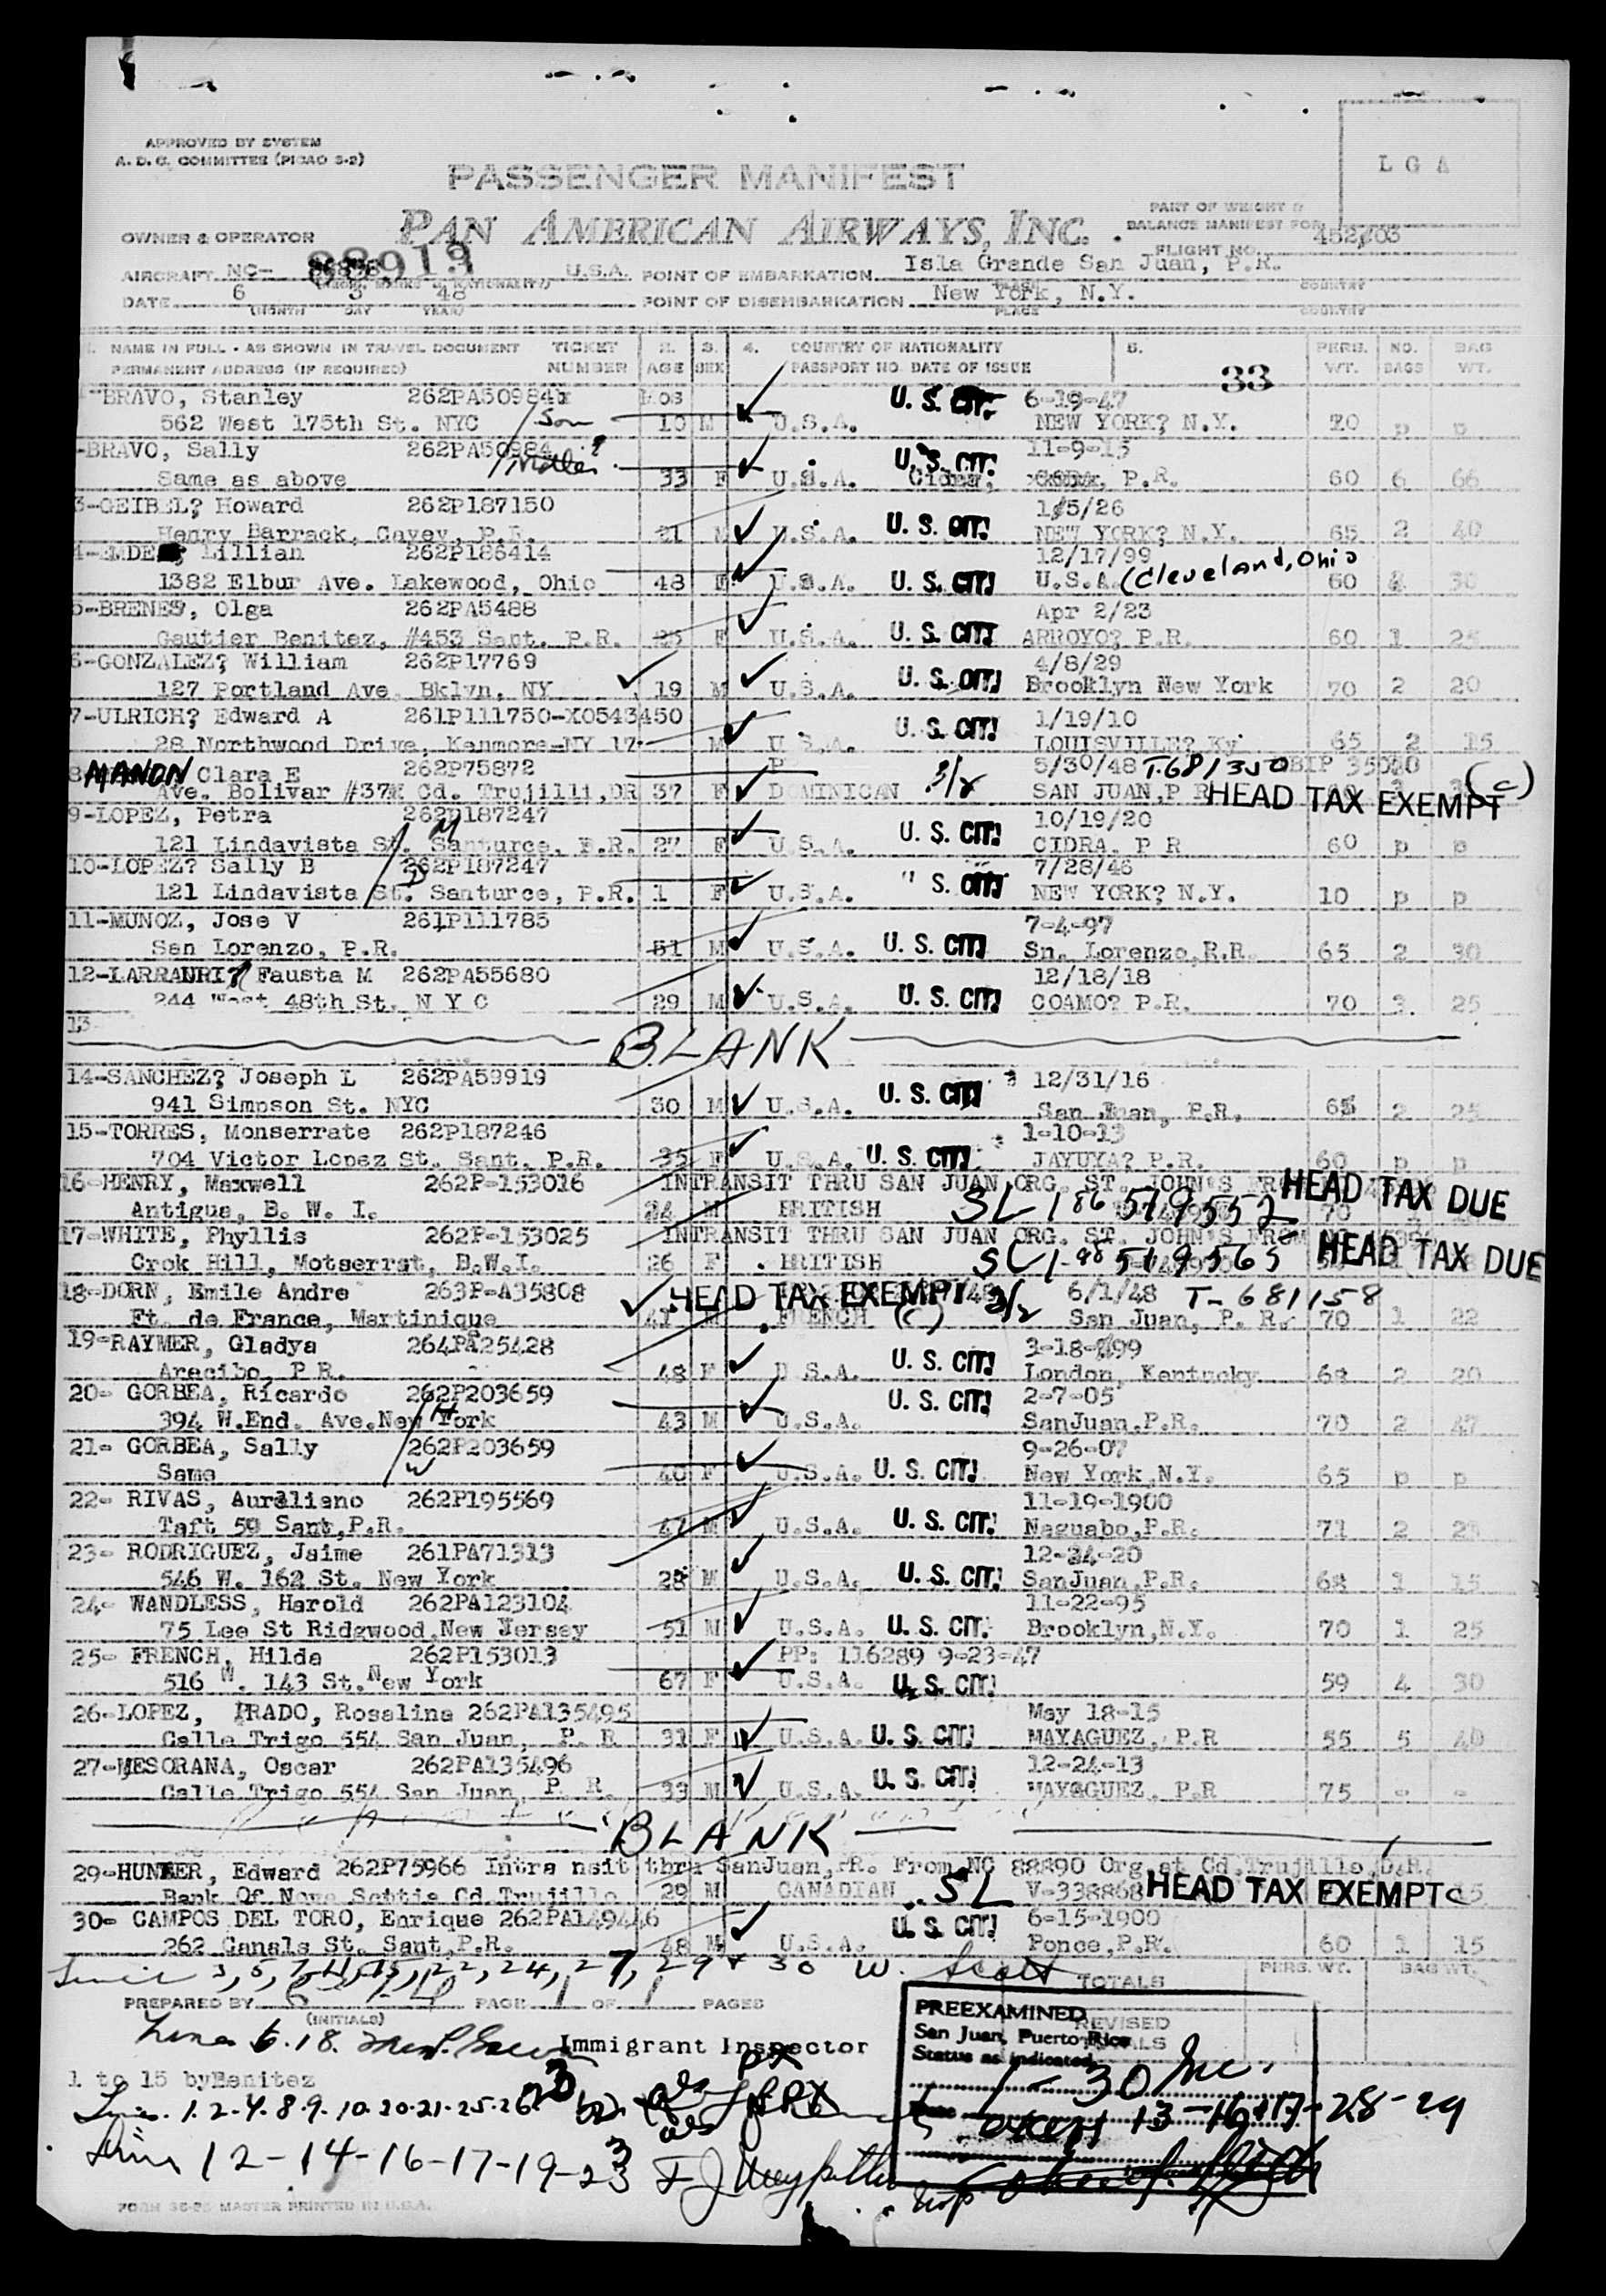 APPROVED BY SYSTEM
A. D. C. COMMITTEE (PICAO 3-2)
LGA
PASSENGER MANIFEST
PAN AMERICAN AIRWAYS, INC.
PART OF WEIGHT &
BALANCE MANIFEST FOR
FLIGHT NO. 452/03
OWNER & OPERATOR
AIRCRAFT NC- 88919 U.S.A. POINT OF EMBARKATION Isla Grande San Juan, P.R.
DATE 6 3 48 POINT OF DISEMBARKATION New York, N.Y.
(MONTH DAY YEAR) PLACE COUNTRY
NAME IN FULL - AS SHOWN IN TRAVEL DOCUMENT TICKET 2. 3. 4. COUNTRY OF NATIONALITY 5. PERS. NO. BAG
PERMANENT ADDRESS (IF REQUIRED) NUMBER AGE SEX PASSPORT NO. DATE OF ISSUE 33 WT. BAGS WT.
BRAVO, Stanley 262PA50984 U. S. CIT. 6-19-47
562 West 175th St. NYC Son 10 M U.S.A. NEW YORK? N.Y. 70 p p
-BRAVO, Sally 262PA50984 U. S. CIT. 11-9-15
Same as above Mother 33 F U.S.A. Cidra, P.R. 60 6 66
3-GEIBEL? Howard 262P187150 1/5/26
Henry Barrack, Cayey, P.R. 21 M U.S.A. U. S. CIT. NEW YORK? N.Y. 65 2 40
Lillian 262P186414 12/17/99
1382 Elbur Ave. Lakewood, Ohio 48 F U.S.A. U. S. CIT. U.S.A. (Cleveland, Ohio 60 30
5-BRENES, Olga 262PA5488 Apr 2/23
Gautier Benitez, #453 Sant. P.R. 25 F U.S.A. U. S. CIT. ARROYO? P.R. 60 1 25
6-GONZALEZ? William 262P17769 4/8/29
127 Portland Ave. Bklyn, NY 19 M U.S.A. U. S. CIT. Brooklyn New York 70 2 20
7-ULRICH? Edward A 261P111750-X0543450 1/19/10
28 Northwood Drive, Kenmore-NY 17 M U.S.A. U. S. CIT. LOUISVILLE? Ky 65 2 15
8 MANON Clara E 262P75872 5/30/48 T.681350
Ave. Bolivar #37 Cd. Trujilli, DR 37 F DOMINICAN 3/2 SAN JUAN, P R HEAD TAX EXEMPT (C)
9-LOPEZ, Petra 262P187247 M 10/19/20
121 Lindavista St. Santurce, P.R. 27 F U.S.A. U. S. CIT. CIDRA. P R 60 p p
10-LOPEZ? Sally B 262P187247 D 7/28/46
121 Lindavista St. Santurce, P.R. 1 F U.S.A. S. CIT. NEW YORK? N.Y. 10 p p
11-MUNOZ, Jose V 261P111785 7-4-97
San Lorenzo, P.R. 51 M U.S.A. U. S. CIT. Sn. Lorenzo, P.R. 65 2 30
12-LARRAURI? Fausta M 262PA55680 12/18/18
244 West 48th St. N Y C 29 M U.S.A. U. S. CIT. COAMO? P.R. 70 3 25
13
BLANK
14-SANCHEZ? Joseph L 262PA59919 12/31/16
941 Simpson St. NYC 30 M U.S.A. U. S. CIT. San Juan, P.R. 65 2 25
15-TORRES, Monserrate 262P187246 1-10-13
704 Victor Lopez St. Sant. P.R. 35 F U.S.A. U. S. CIT. JAYUYA? P.R. 60 p p
16-HENRY, Maxwell 262P-153016 INTRANSIT THRU SAN JUAN ORG. ST. JOHN'S FROM HEAD TAX DUE
Antigua, B. W. I. 24 M BRITISH SL 186 519552 70
17-WHITE, Phyllis 262P-153025 INTRANSIT THRU SAN JUAN ORG. ST. JOHN'S FROM HEAD TAX DUE
Crok Hill, Motserrat, B.W.I. 26 F BRITISH
18-DORN, Emile Andre 263P-A35808 HEAD TAX EXEMPT 3/2 6/1/48 T-681158
Ft. de France, Martinique 41 M FRENCH (C) San Juan, P. R. 70 1 22
19-RAYMER, Gladys 264PA25428 3-18-99
Arecibo, P.R. 48 F U.S.A. U. S. CIT. London, Kentucky 68 2 20
20- GORBEA, Ricardo 262P203659 2-7-05
394 W.End. Ave.New York H 43 M U.S.A. U. S. CIT. SanJuan,P.R. 70 2 47
21- GORBEA, Sally 262P203659 9-26-07
Same W 40 F U.S.A. U. S. CIT. New York,N.Y. 65 p p
22- RIVAS, Aureliano 262P195569 11-19-1900
Taft 59 Sant,P.R. 47 M U.S.A. U. S. CIT. Naguabo,P.R. 71 2 25
23- RODRIGUEZ, Jaime 261PA71313 12-24-20
546 W. 162 St. New York 28 M U.S.A. U. S. CIT. SanJuan,P.R. 68 1 15
24- WANDLESS, Harold 262PA123104 11-22-95
75 Lee St Ridgwood,New Jersey 51 M U.S.A. U. S. CIT. Brooklyn,N.Y. 70 1 25
25- FRENCH, Hilda 262P153013 PP: 116289 9-23-47
516 W. 143 St.New York 67 F U.S.A. U. S. CIT. 59 4 30
26-LOPEZ, PRADO, Rosalina 262PA135495 May 18-15
Calle Trigo 554 San Juan, P. R 31 F U.S.A. U. S. CIT. MAYAGUEZ, P.R 55 5 40
27-MESORANA, Oscar 262PA135496 12-24-13
Calle Trigo 554 San Juan, P. R. 33 M U.S.A. U. S. CIT. MAYAGUEZ. P.R 75 - -
BLANK
29-HUNTER, Edward 262P75966 Intra nsit thru SanJuan,PR. From NC 88890 Org at Cd.Trujillo,D.R.
Bank Of Nova Scttia Cd Trujillo 29 M CANADIAN SL V-338868 HEAD TAX EXEMPT C 15
30- CAMPOS DEL TORO, Enrique 262PA149446 6-15-1900
262 Canals St. Sant,P.R. 48 M U.S.A. U. S. CIT. Ponce,P.R. 60 1 15
22, 24, 27, 29 + 30 W. Scott
TOTALS PERS. WT. BAG WT.
PREPARED BY PAGE 1 OF 1 PAGES
(INITIALS)
REVISED
TOTALS
PREEXAMINED
San Juan, Puerto Rico
Status as indicated
Immigrant Inspector
1 - 30 Inc.
1 to 15 byBenitez
1.2.4.8.9.10.20.21.25.26
except 13-16-17-28-29
12-14-16-17-19-23
FORM 36-25 MASTER PRINTED IN U.S.A.